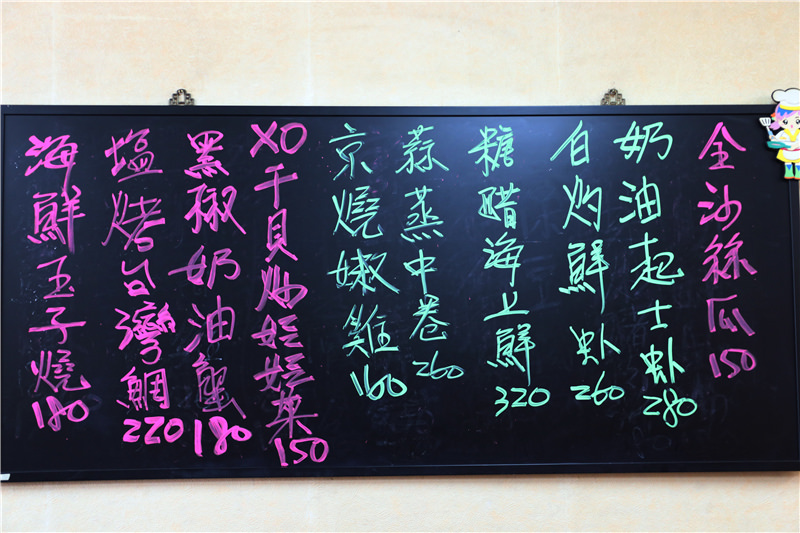 全沙絲瓜150
奶油起士虾280
白灼鮮虾260
糖醋海上鮮320
蒜蒸中卷260
京燒嫩雞160
XO干貝炒娃娃菜150
黑椒奶油蟹180
塩烤台灣鯛220
海鮮玉子燒180